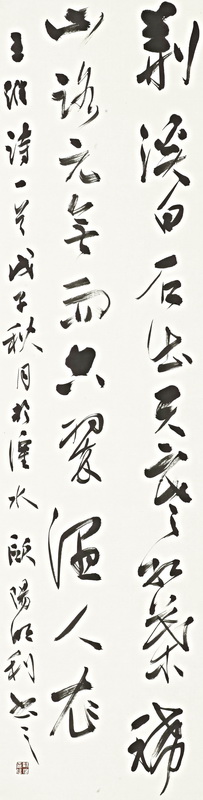 荆溪白石出天寒紅葉稀
山路元無雨空翠濕人衣
王維詩一首戊子秋月於水歐陽利書之